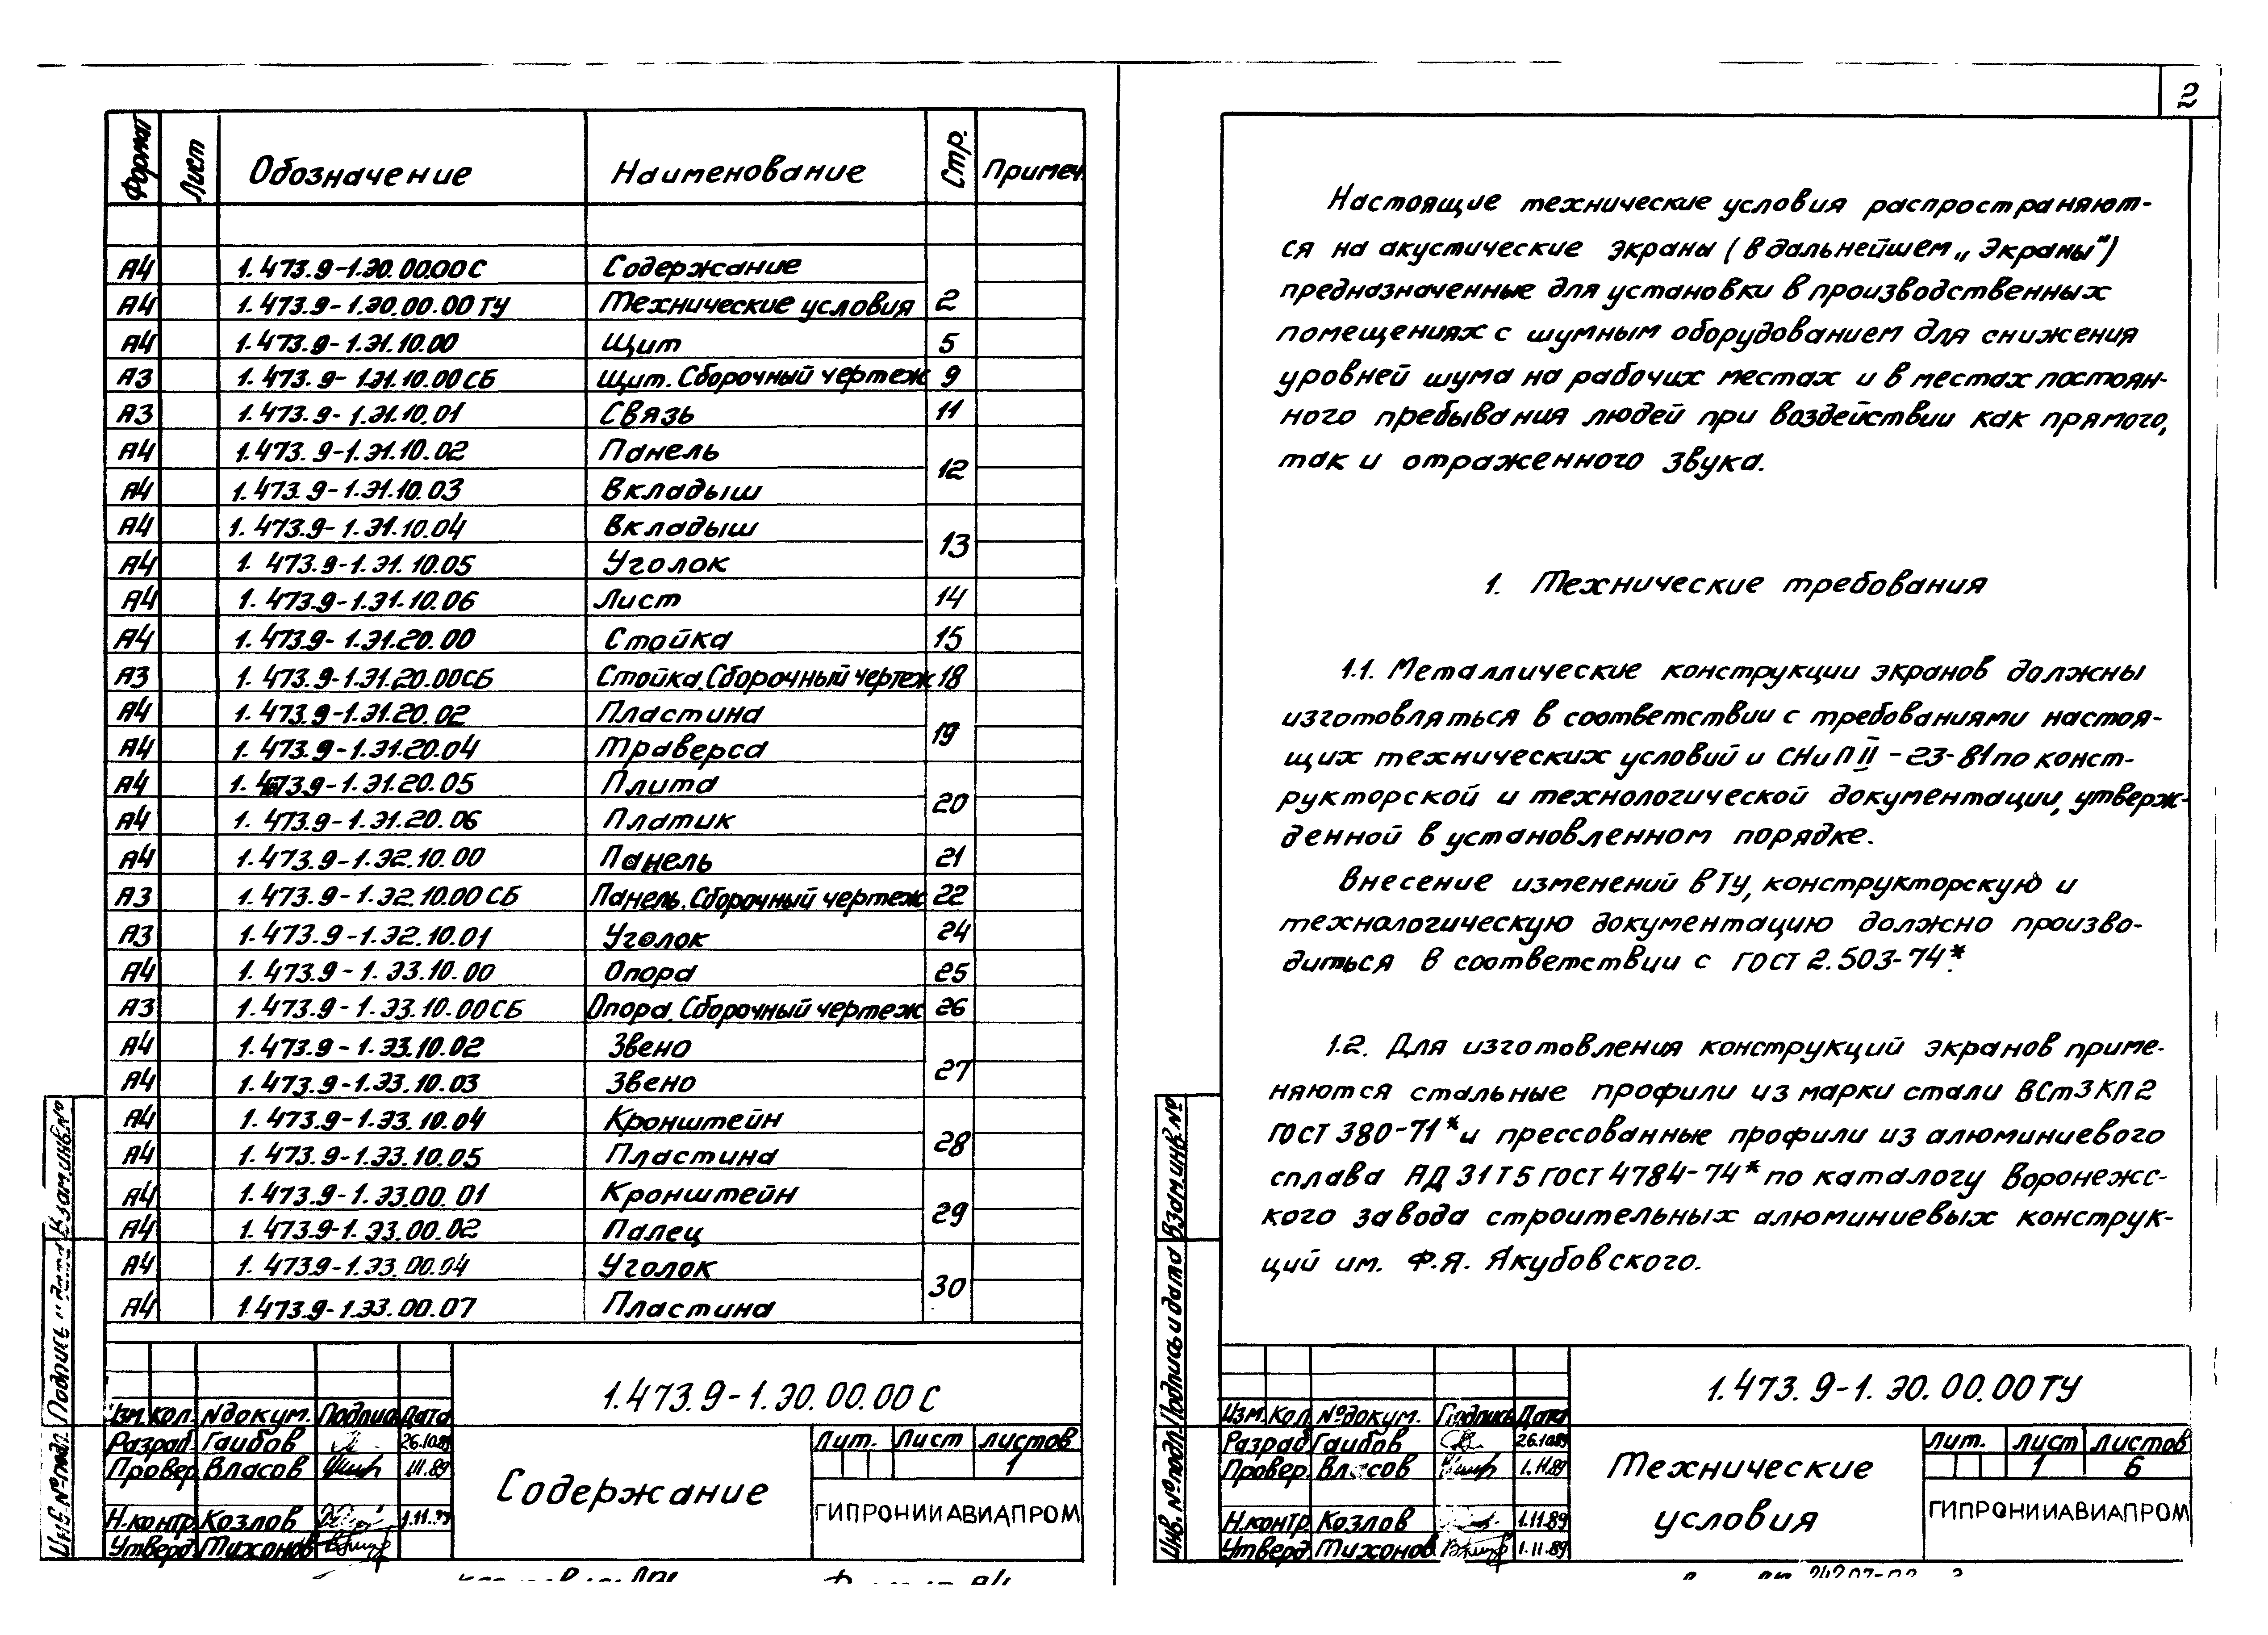 Формат Лист Обозначение Наименование Стр. Примеч.
А4 1.473.9-1.Э0.00.00 С Содержание
А4 1.473.9-1.Э0.00.00 ТУ Технические условия 2
А4 1.473.9-1.Э1.10.00 Щит 5
А3 1.473.9-1.Э1.10.00 СБ Щит. Сборочный чертеж 9
А3 1.473.9-1.Э1.10.01 Связь 11
А4 1.473.9-1.Э1.10.02 Панель
12
А4 1.473.9-1.Э1.10.03 Вкладыш
А4 1.473.9-1.Э1.10.04 Вкладыш
13
А4 1.473.9-1.Э1.10.05 Уголок
А4 1.473.9-1.Э1.10.06 Лист 14
А4 1.473.9-1.Э1.20.00 Стойка 15
А3 1.473.9-1.Э1.20.00 СБ Стойка. Сборочный чертеж 18
А4 1.473.9-1.Э1.20.02 Пластина
19
А4 1.473.9-1.Э1.20.04 Траверса
А4 1.473.9-1.Э1.20.05 Плита
20
А4 1.473.9-1.Э1.20.06 Платик
А4 1.473.9-1.Э2.10.00 Панель 21
А3 1.473.9-1.Э2.10.00 СБ Панель. Сборочный чертеж 22
А3 1.473.9-1.Э2.10.01 Уголок 24
А4 1.473.9-1.Э3.10.00 Опора 25
А3 1.473.9-1.Э3.10.00 СБ Опора. Сборочный чертеж 26
А4 1.473.9-1.Э3.10.02 Звено
27
А4 1.473.9-1.Э3.10.03 Звено
А4 1.473.9-1.Э3.10.04 Кронштейн
28
А4 1.473.9-1.Э3.10.05 Пластина
А4 1.473.9-1.Э3.00.01 Кронштейн
29
А4 1.473.9-1.Э3.00.02 Палец
А4 1.473.9-1.Э3.00.04 Уголок
30
А4 1.473.9-1.Э3.00.07 Пластина
Взам.инв.№
Подпись и дата
Инв.№ подл.
1.473.9-1.Э0.00.00 С
Изм. Кол. № докум. Подпись Дата
Разраб. Гаибов 26.10.89
Провер. Власов 1.11.89
Н.контр. Козлов 1.11.89
Утверд. Тихонов
Содержание
Лит. Лист Листов
1
ГИПРОНИИАВИАПРОМ
2
Настоящие технические условия распространяют-
ся на акустические экраны (в дальнейшем „Экраны")
предназначенные для установки в производственных
помещениях с шумным оборудованием для снижения
уровней шума на рабочих местах и в местах постоян-
ного пребывания людей при воздействии как прямого,
так и отраженного звука.
1. Технические требования
1.1. Металлические конструкции экранов должны
изготовляться в соответствии с требованиями настоя-
щих технических условий и СНиП II-23-81 по конст-
рукторской и технологической документации, утверж-
денной в установленном порядке.
Внесение изменений в ТУ, конструкторскую и
технологическую документацию должно произво-
диться в соответствии с ГОСТ 2.503-74*.
1.2. Для изготовления конструкций экранов приме-
няются стальные профили из марки стали ВСт3КП2
ГОСТ 380-71* и прессованные профили из алюминиевого
сплава АД 31Т5 ГОСТ 4784-74* по каталогу Воронежс-
кого завода строительных алюминиевых конструк-
ций им. Ф.Я. Якубовского.
Взам.инв.№
Подпись и дата
Инв.№ подл.
1.473.9-1.Э0.00.00 ТУ
Изм. Кол № докум. Подпись Дата
Разраб Гаибов 26.10.89
Провер. Власов 1.11.89
Н.контр. Козлов 1.11.89
Утверд. Тихонов 1.11.89
Технические
условия
Лит. Лист Листов
1 6
ГИПРОНИИАВИАПРОМ